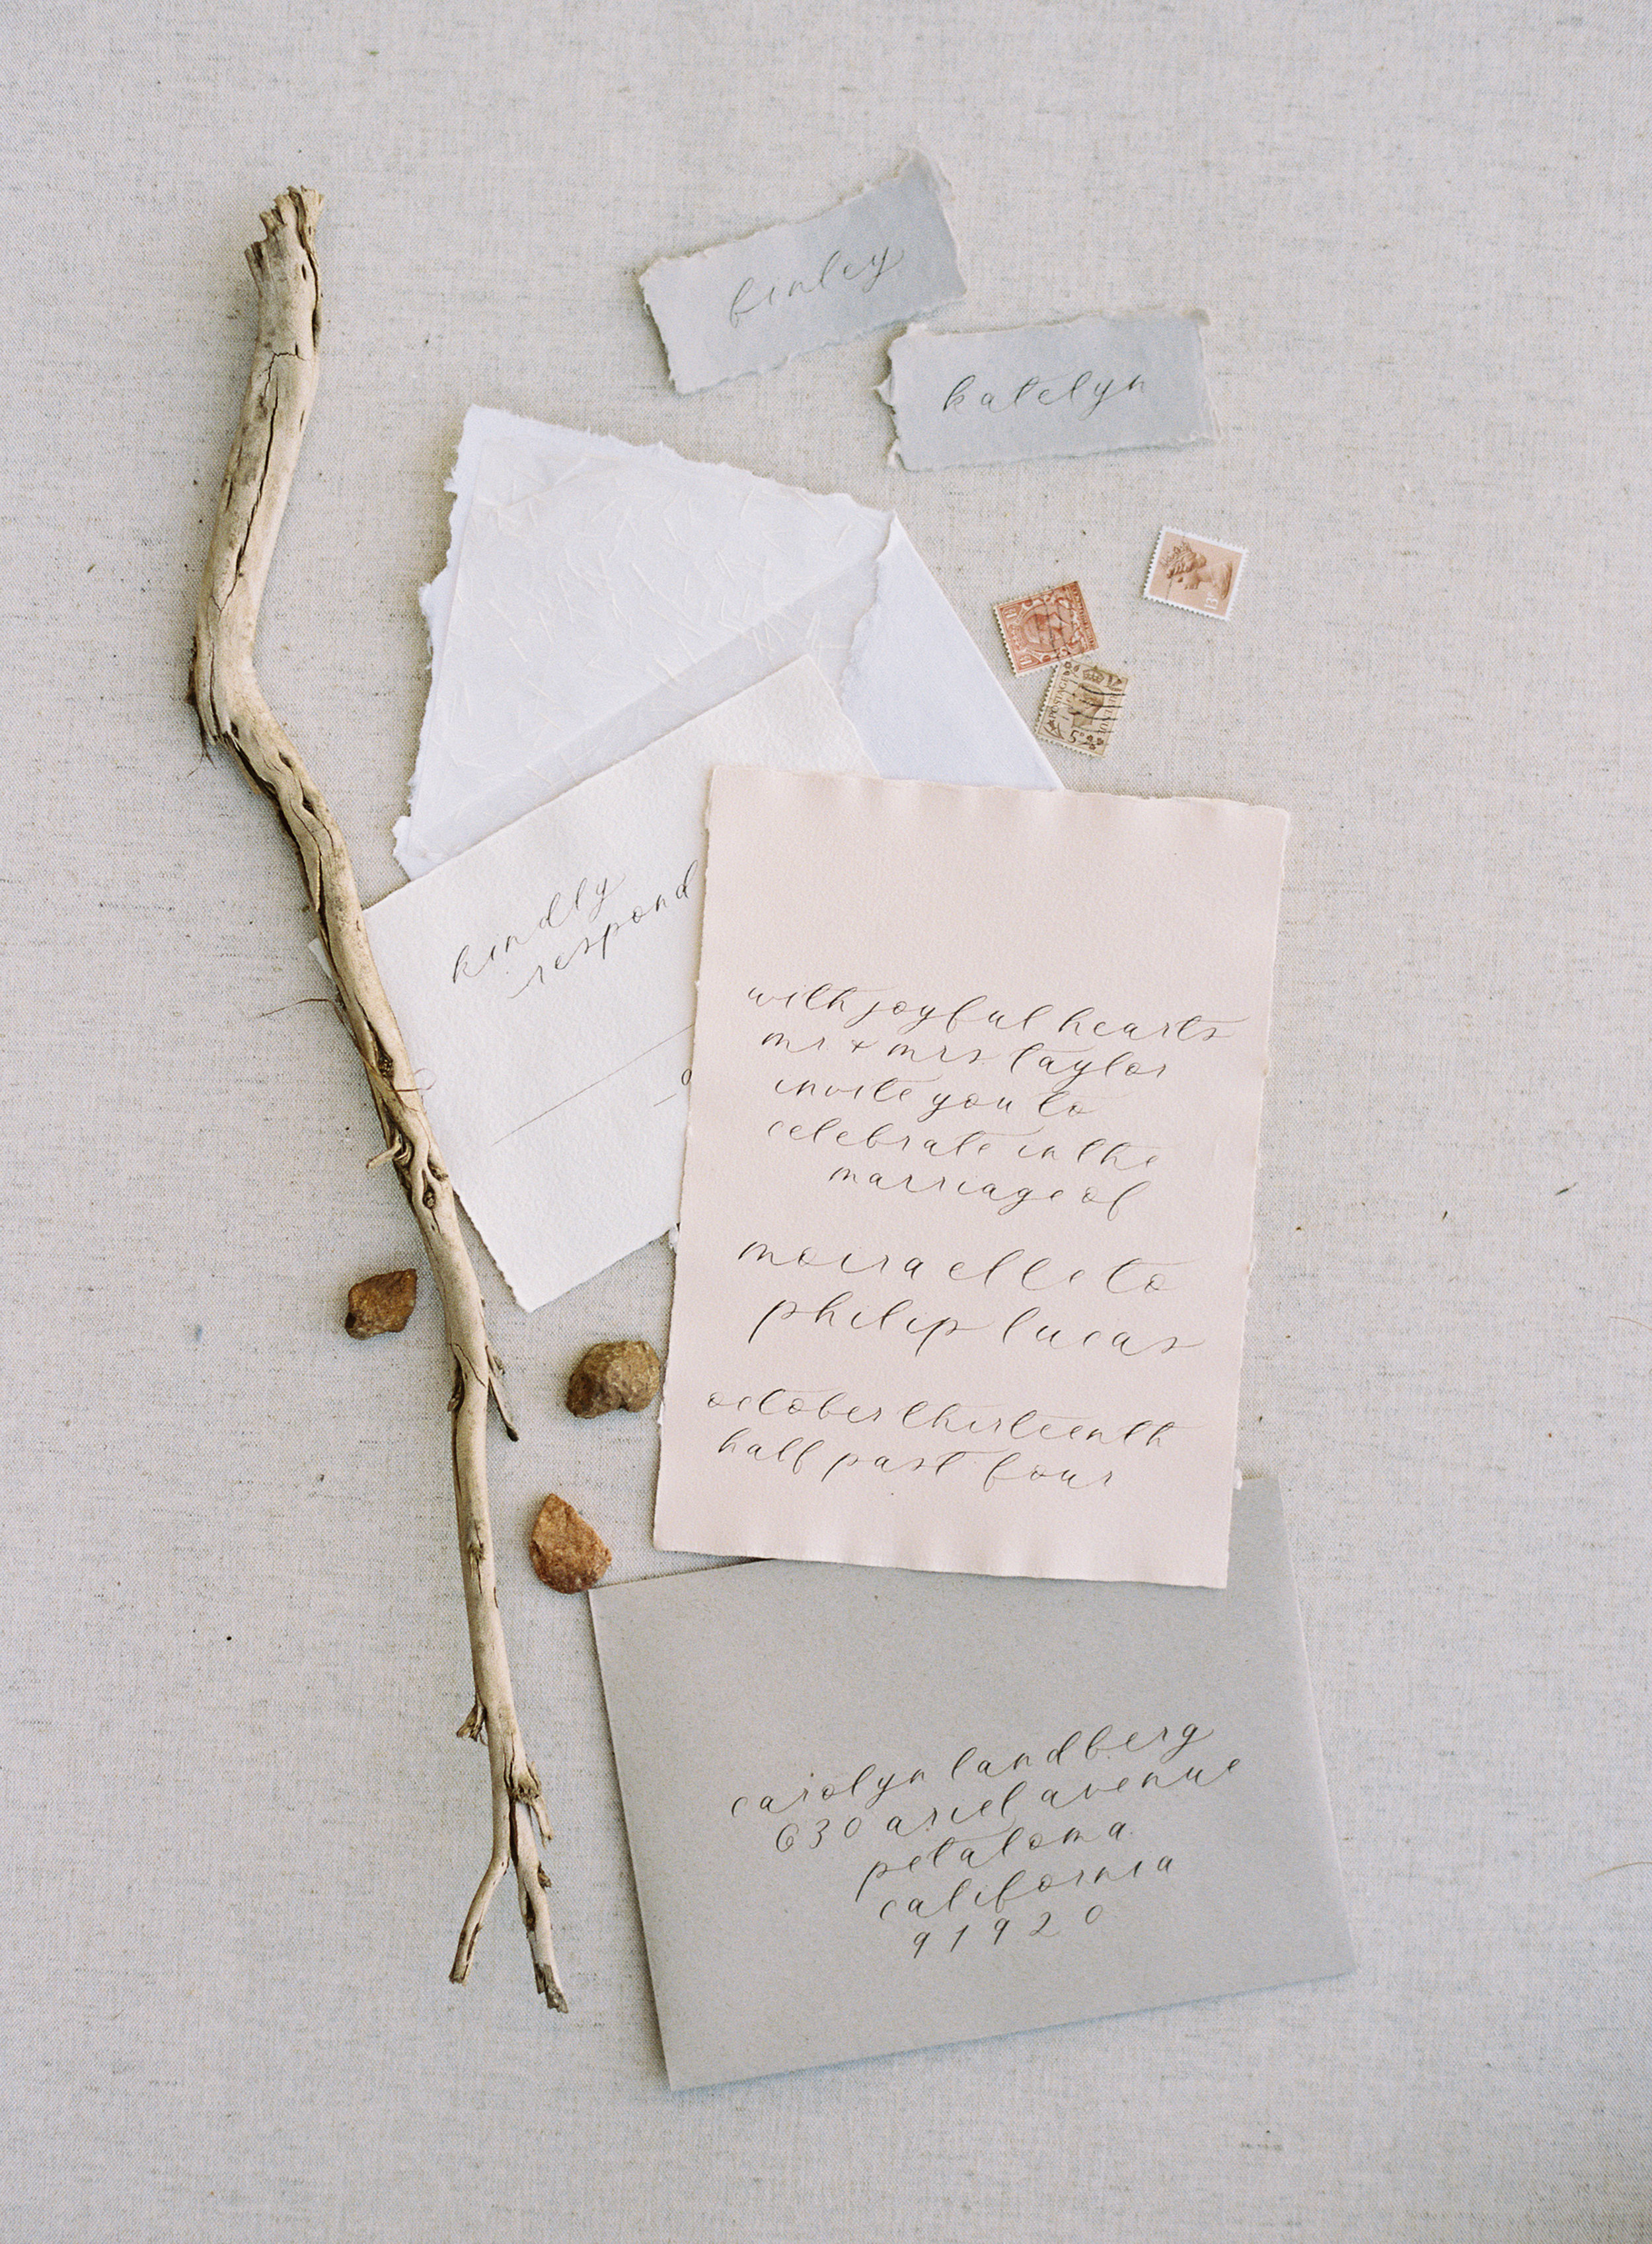 finley
katelyn
kindly
respond
with joyful hearts
mr. & mrs. taylor
invite you to
celebrate in the
marriage of
moira elle to
philip lucas
october thirteenth
half past four
carolyn landberg
630 ariel avenue
petaloma
california
91920